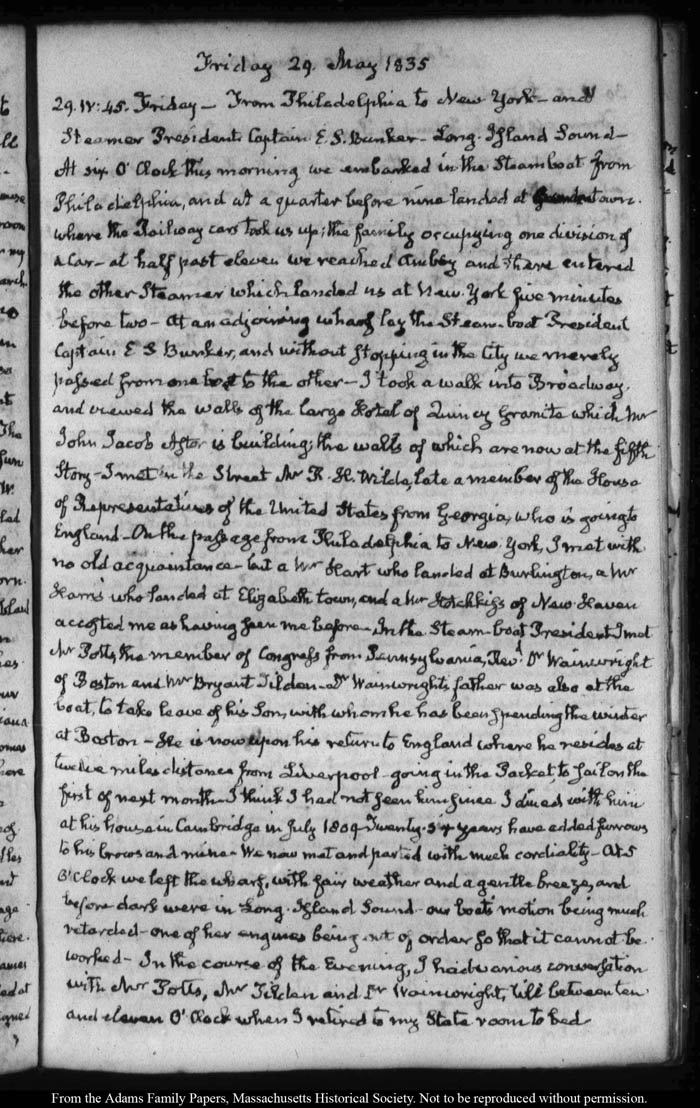 Friday 29. May 1835
29. IV:45. Friday — From Philadelphia to New York — and
Steamer President Captain E. S. Bunker — Long-Island Sound —
At six O'Clock this morning we embarked in the Steamboat from
Philadelphia, and at a quarter before nine landed at
where the Railway cars took us up; the family occupying one division of
a Car — at half past eleven we reached Amboy and there entered
the other Steamer which landed us at New-York five minutes
before two — At an adjoining wharf lay the Steam-boat President
Captain E S Bunker, and without stopping in the City we merely
passed from one boat to the other — I took a walk into Broadway,
and viewed the walls of the large Hotel of Quincy Granite which Mr
John Jacob Astor is building; the walls of which are now at the fifth
Story — I met in the Street Mr R. H. Wilde, late a member of the House
of Representatives of the United States from Georgia, who is going to
England — On the passage from Philadelphia to New York, I met with
no old acquaintance — but a Mr Hart who landed at Burlington, a Mr
Harris who landed at Elizabeth town, and a Mr Hotchkiss of New Haven
accosted me as having seen me before — In the Steam-boat President I met
Mr Potts, the member of Congress from Pennsylvania, Revd. Dr Wainwright
of Boston and Mr Bryant Tilden — Dr Wainwright's father was also at the
boat, to take leave of his Son, with whom he has been spending the winter
at Boston — He is now upon his return to England where he resides at
twelve miles distance from Liverpool — going in the Packet, to sail on the
first of next month — I think I had not seen him since I dined with him
at his house in Cambridge in July 1809 — Twenty-six years have added furrows
to his brows and mine — We now met and parted with much cordiality — At 5
O'Clock we left the wharf, with fair weather and a gentle breeze, and
before dark were in Long-Island Sound — our boat's motion being much
retarded — one of her engines being out of order so that it cannot be
worked — In the course of the Evening, I had various conversation
with Mr Potts, Mr Tilden and Dr Wainwright, till between ten
and eleven O'Clock when I retired to my State room to bed
From the Adams Family Papers, Massachusetts Historical Society. Not to be reproduced without permission.